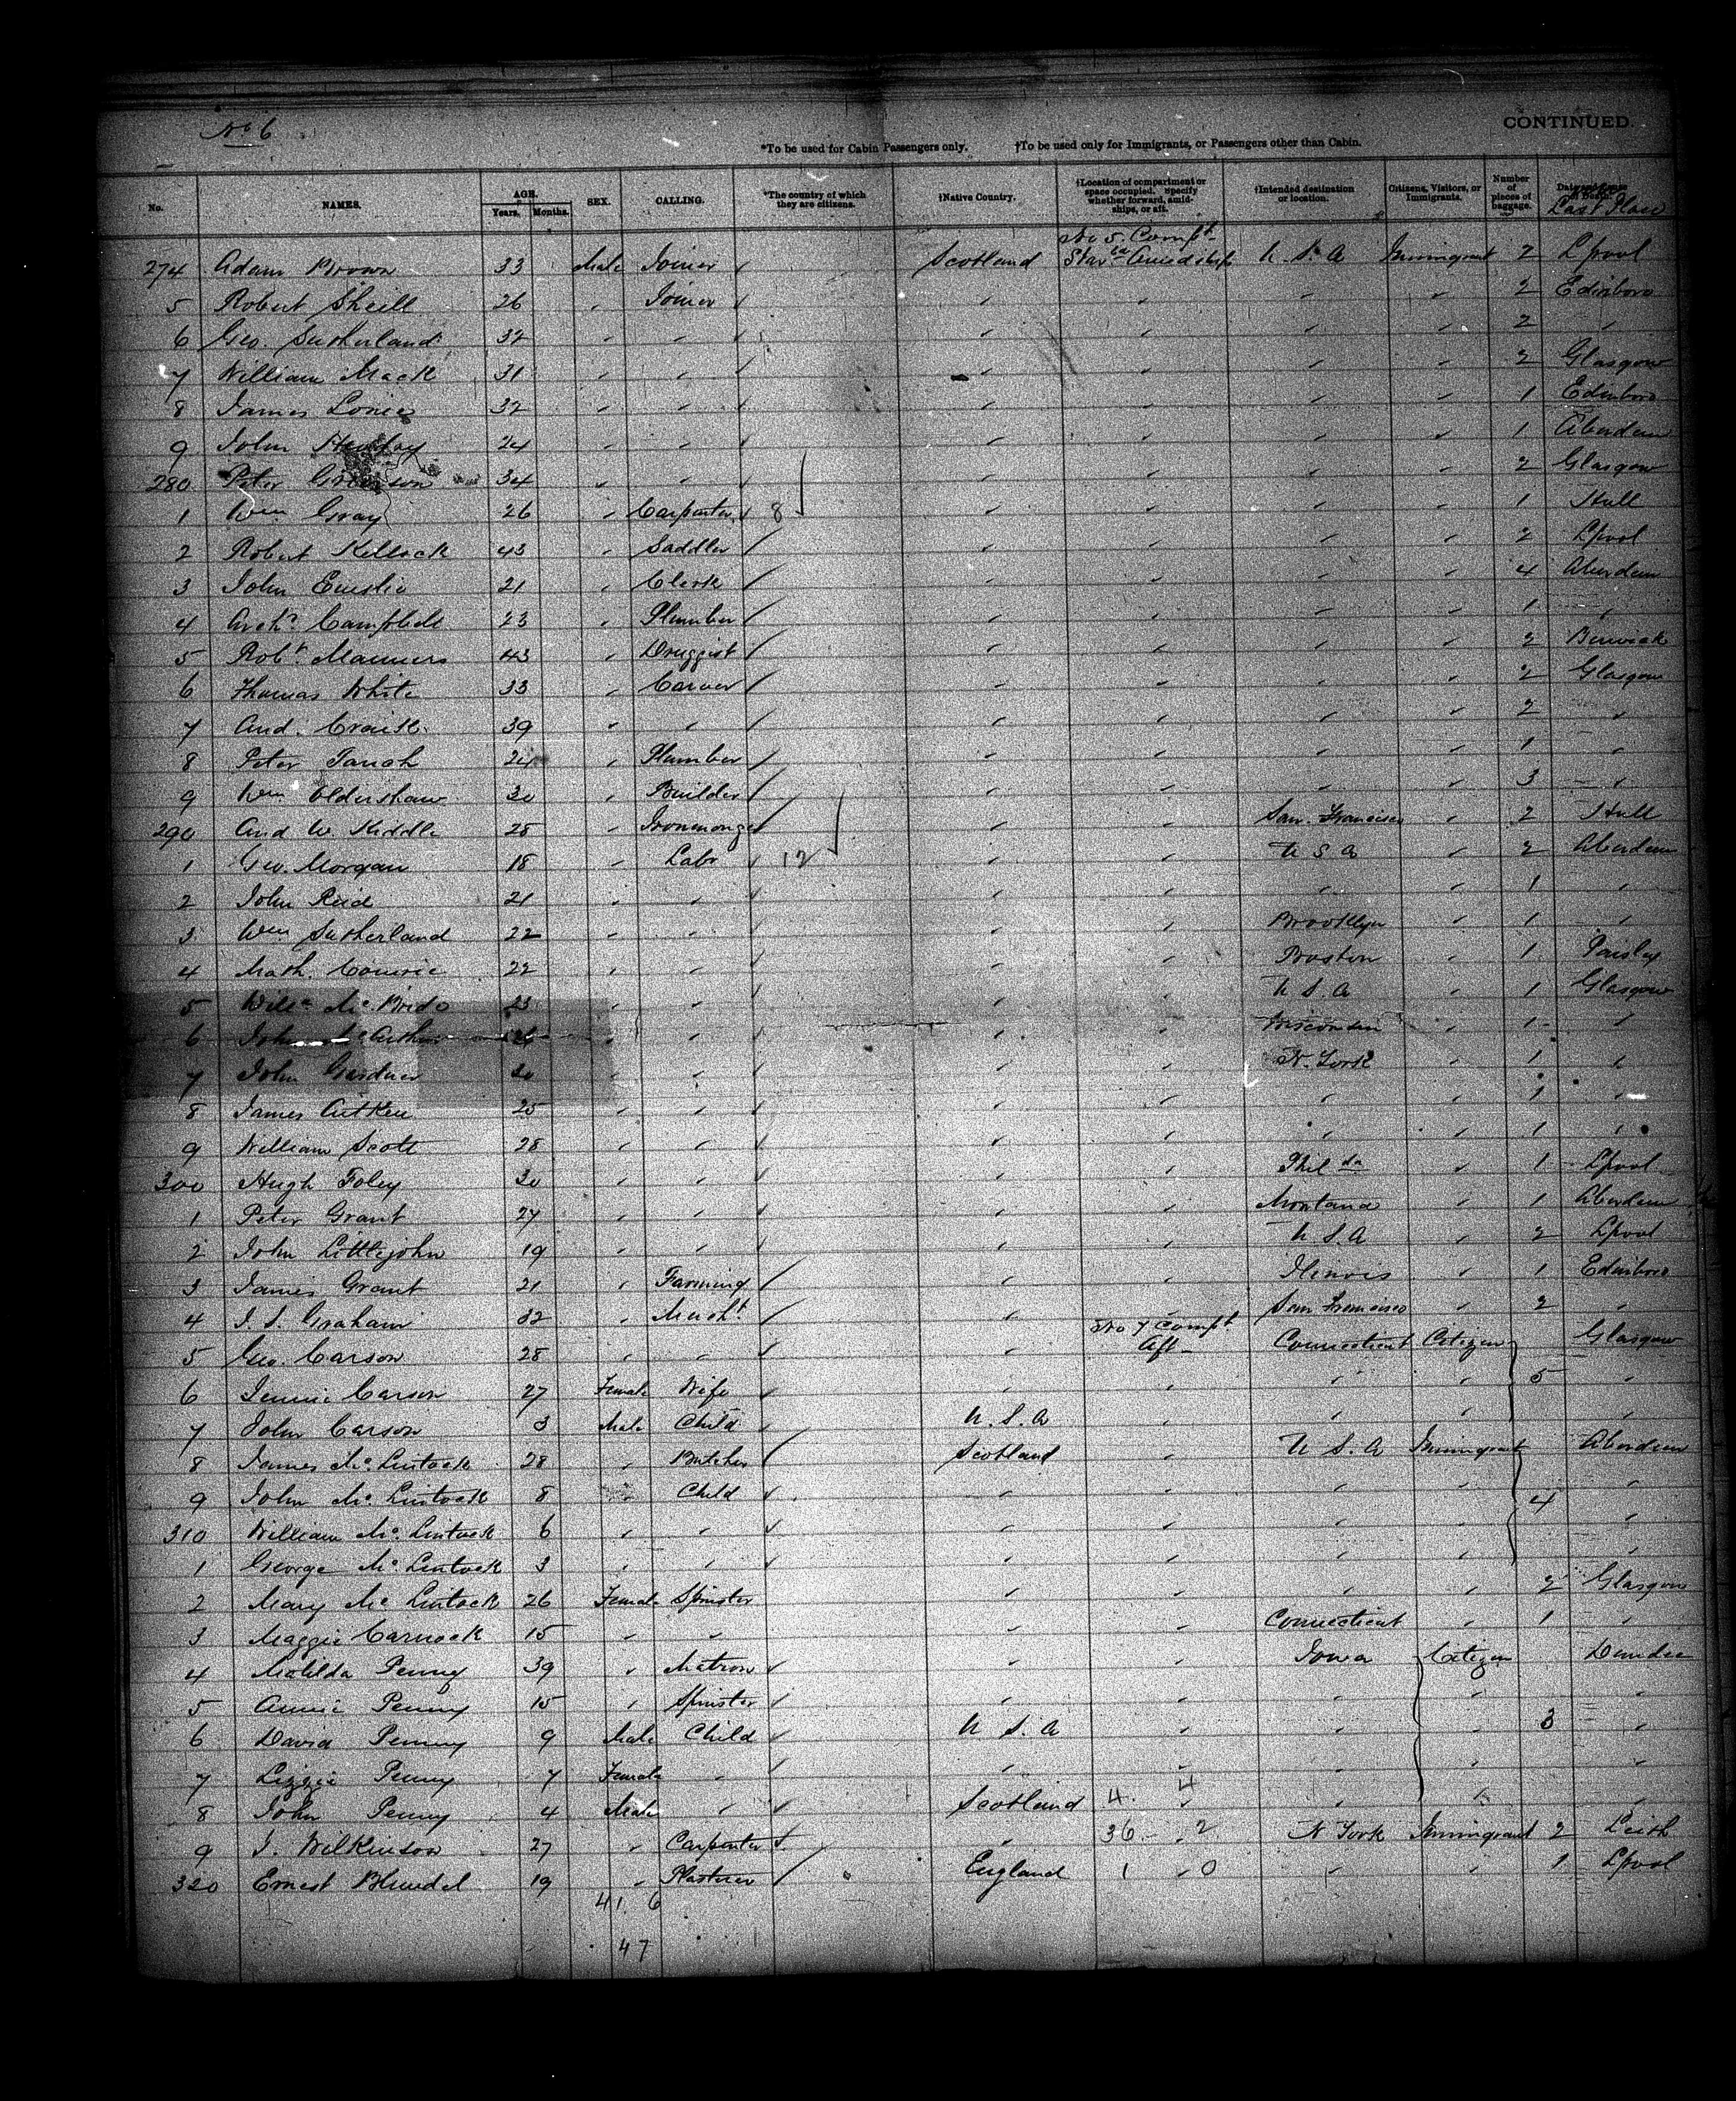 No 6
CONTINUED.
*To be used for Cabin Passengers only. †To be used only for Immigrants, or Passengers other than Cabin.
No. NAMES. AGE. Years. Months. SEX. CALLING. *The country of which they are citizens. †Native Country. †Location of compartment or space occupied. Specify whether forward, amidships, or aft. †Intended destination or location. Citizens, Visitors, or Immigrants. Number of pieces of baggage. Last Place
274 Adam Brown 33 Male Joiner Scotland No 5 Compt Starbd Amidships U. S. A Immigrant 2 Lpool
5 Robert Sheill 26 " Joiner " " " " 2 Edinboro
6 Geo. Sutherland 32 " " " " " " 2 "
7 William Mack 31 " " " " " " 2 Glasgow
8 James Lonie 32 " " " " " " 1 Edinboro
9 John 24 " " " " " " 1 Aberdeen
280 Peter 34 " " " " " " 2 Glasgow
1 Wm Gray 26 " Carpenter 8 " " " " 1 Hull
2 Robert Kellock 43 " Saddler " " " " 2 Lpool
3 John Emslie 21 " Clerk " " " " 4 Aberdeen
4 Archd Campbell 23 " Plumber " " " " 1 "
5 Robt Manners 43 " Druggist " " " " 2 Berwick
6 Thomas White 33 " Carver " " " " 2 Glasgow
7 And. Craik 39 " " " " " " 2 "
8 Peter 24 " Plumber " " " " 1 "
9 Wm Eldershaw 30 " Builder " " " " 3 "
290 And W Kiddle 25 " Ironmonger " " San Francisco " 2 Hull
1 Geo. Morgan 18 " Labr 12 " " U S A " 2 Aberdeen
2 John Reid 21 " " " " " " 1 "
3 Wm Sutherland 22 " " " " Brooklyn " 1 "
4 Math. Comrie 22 " " " " Boston " 1 Paisley
5 Willm McBride 23 " " " " U S. A " 1 Glasgow
6 John McArthur 26 " " " " Wisconsin " 1 "
7 John Gardner 20 " " " " N. York " 1 "
8 James Aitken 25 " " " " " " 1 "
9 William Scott 28 " " " " " " 1 "
300 Hugh Foley 30 " " " " Phil da " 1 Lpool
1 Peter Grant 27 " " " " Montana " 1 Aberdeen
2 John Littlejohn 19 " " " " U S. A " 2 Lpool
3 James Grant 21 " Farming " " Illinois " 1 Edinboro
4 J. S. Graham 32 " Mercht " " San Francisco " 2 "
5 Geo. Carson 28 " " " No 7 Compt Aft Connecticut Citizen Glasgow
6 Jennie Carson 27 Female Wife " " " " 5 "
7 John Carson 3 Male Child U. S. A " " " "
8 James McLintock 28 " Butcher Scotland " U S. A Immigrant Aberdeen
9 John McLintock 8 " Child " " " " 4 "
310 William McLintock 6 " " " " " " "
1 George McLintock 3 " " " " " " "
2 Mary McLintock 26 Female Spinster " " " " 2 Glasgow
3 Maggie Carnock 15 " " " " Connecticut " 1 "
4 Matilda Penny 39 " Matron " " Iowa Citizen Dundee
5 Annie Penny 15 " Spinster " " " " "
6 David Penny 9 Male Child U S. A " " " 3 "
7 Lizzie Penny 7 Female " " " " " "
8 John Penny 4 Male " Scotland 4. 4 " " "
9 J. Wilkinson 27 " Carpenter " 36 2 N York Immigrant 2 Leith
320 Ernest Blundel 19 " Plasterer England 1 0 " " 1 Lpool
41. 6
47